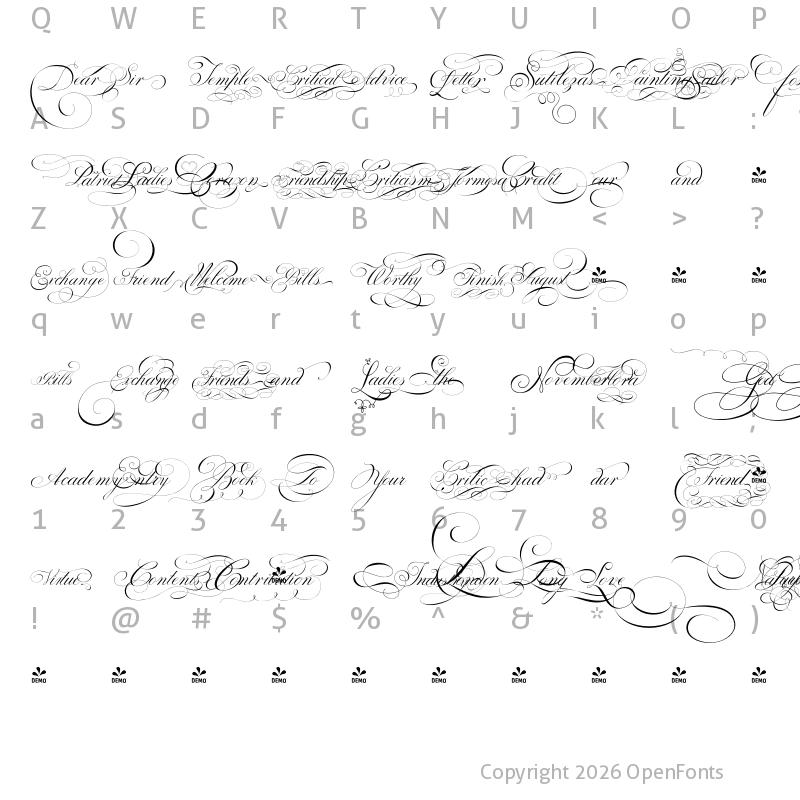 Q W E R T Y U I O P
Dear Sir Temple Critical Advice Letter Sutilezas Painting
A S D F G H J K L :
Patriot Ladies Corazon Friendship Criticism Hermosa Credit our and DEMO
Z X C V B N M < > ?
Exchange Friend Welcome Bills Worthy Finish August DEMO DEMO DEMO
q w e r t y u i o p
Bills Exchange Friends and Ladies the November God
a s d f g h j k l ;
Academy Entry Book To Your Critic had dar Friend DEMO
1 2 3 4 5 6 7 8 9 0
Virtue Contents DEMO London Long Love
! @ # $ % ^ & * ( )
DEMO DEMO DEMO DEMO DEMO DEMO DEMO DEMO DEMO DEMO
Copyright 2026 OpenFonts